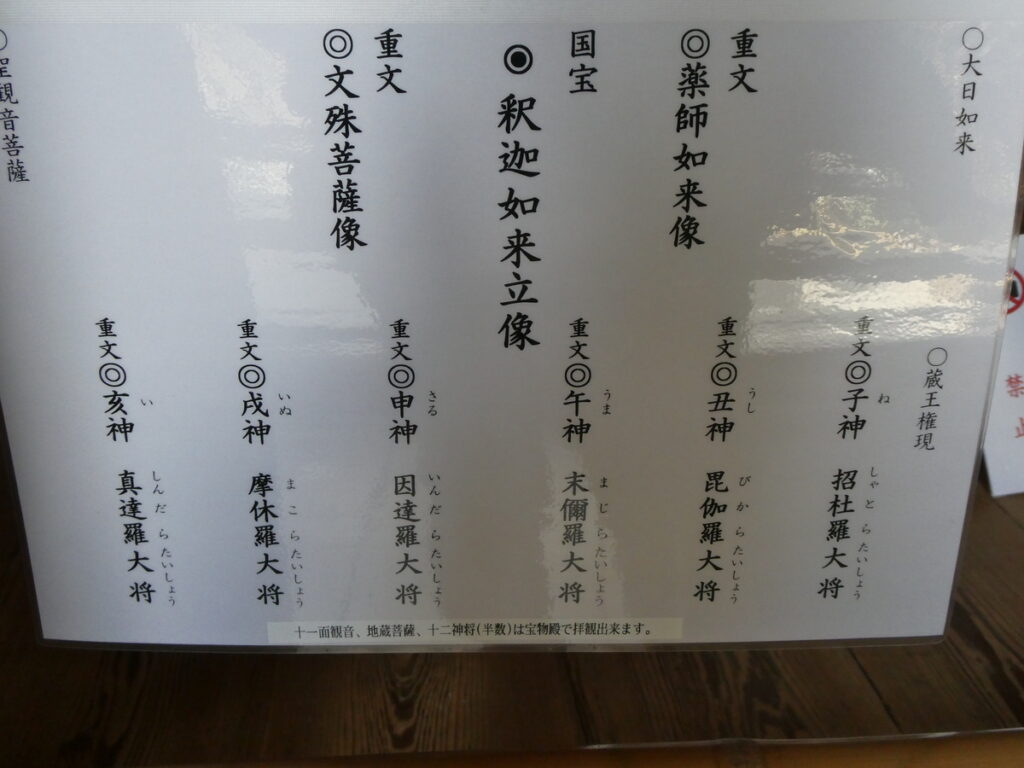 ○大日如来
○蔵王権現
重文
◎薬師如来像
国宝
◉釈迦如来立像
重文
◎文殊菩薩像
○聖観音菩薩
ね
重文◎子神
しゃとらたいしょう
招杜羅大将
うし
重文◎丑神
びからたいしょう
毘伽羅大将
うま
重文◎午神
まじらたいしょう
末儞羅大将
さる
重文◎申神
いんだらたいしょう
因達羅大将
いぬ
重文◎戌神
まこらたいしょう
摩休羅大将
い
重文◎亥神
しんだらたいしょう
真達羅大将
十一面観音、地蔵菩薩、十二神将(半数)は宝物殿で拝観出来ます。
禁止